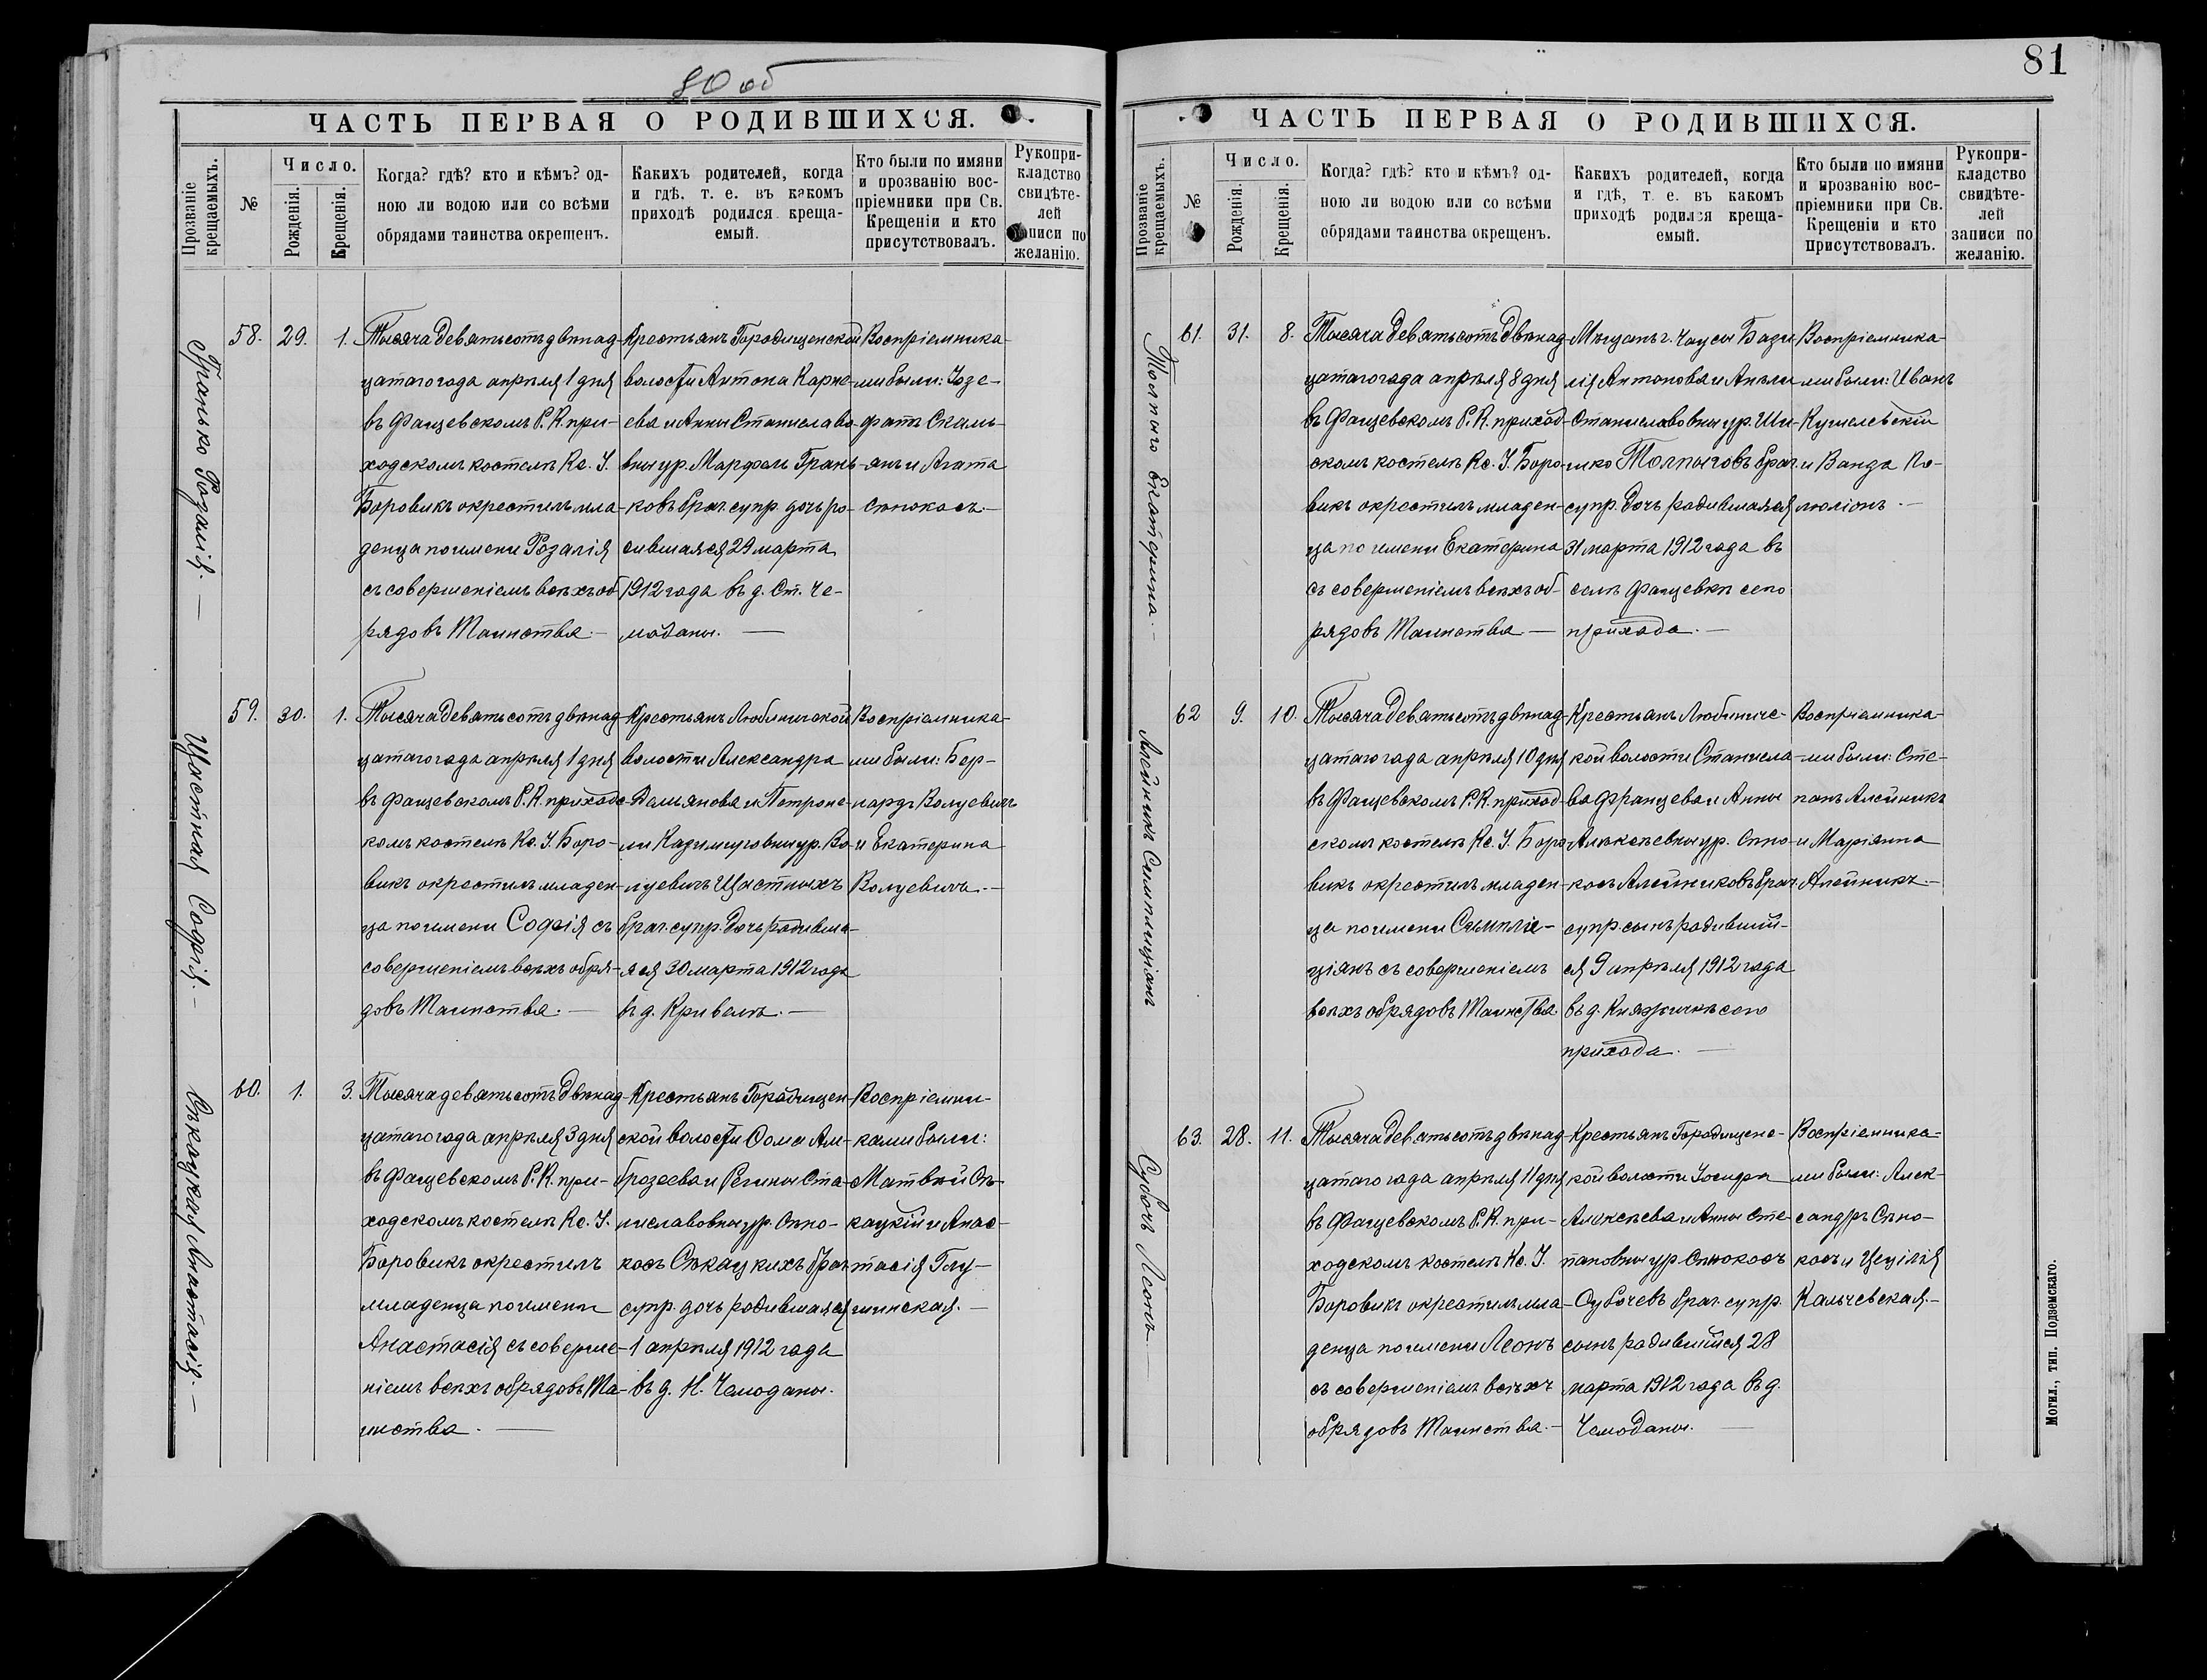 80 об
ЧАСТЬ ПЕРВАЯ О РОДИВШИХСЯ.
Прозваніе крещаемыхъ.
№
Число.
Рожденія.
Крещенія.
Когда? гдѣ? кто и кѣмъ? од-
ною ли водою или со всѣми
обрядами таинства окрещенъ.
Какихъ родителей, когда
и гдѣ, т. е. въ какомъ
приходѣ родился креща-
емый.
Кто были по имяни
и прозванію вос-
пріемники при Св.
Крещеніи и кто
присутствовалъ.
Рукопри-
кладство
свидѣте-
лей
записи по
желанію.
Гранько Розалія. —
58. 29. 1.
Тысяча девятьсотъ двѣнад-
цатаго года апрѣля 1 дня
въ Фащевскомъ Р. К. при-
ходскомъ костелѣ Кс. І.
Боровикъ окрестилъ мла-
денца по имени Розалія
съ совершеніемъ всѣхъ об-
рядовъ Таинства. —
Крестьянъ Городищенской
волости Антона Карне-
ева и Анны Станиславо-
вны ур. Марфель Грань-
ковъ брач. супр. дочь ро-
дившаяся 29 марта
1912 года въ д. Ст. Че-
моданы. —
Воспріемника-
ми были: Іозе-
фатъ Скаль-
янъ и Агата
Сѣнокосъ —
Щастная Софія. —
59. 30. 1.
Тысяча девятьсотъ двѣнад-
цатаго года апрѣля 1 дня
въ Фащевскомъ Р. К. приходс-
комъ костелѣ Кс. І. Боро-
викъ окрестилъ младен-
ца по имени Софія съ
совершеніемъ всѣхъ обря-
довъ Таинства. —
Крестьянъ Любиничской
волости Александра
Демьянова и Петроне-
ли Казимировны ур. Во-
луевичъ Щастныхъ
брач. супр. дочь родивша-
яся 30 марта 1912 года
въ д. Кривелѣ. —
Воспріемника-
ми были: Бер-
нардъ Волуевичъ
и Екатерина
Волуевичъ. —
Сѣкацкая Анастасія. —
60. 1. 3.
Тысяча девятьсотъ двѣнад-
цатаго года апрѣля 3 дня
въ Фащевскомъ Р. К. при-
ходскомъ костелѣ Кс. І.
Боровикъ окрестилъ
младенца по имени
Анастасія съ соверше-
ніемъ всѣхъ обрядовъ Та-
инства. —
Крестьянъ Городищен-
ской волости Ѳомы Ам-
брозеева и Регины Ста-
ниславовны ур. Сѣно-
косъ Сѣкацкихъ брач.
супр. дочь родившаяся
1 апрѣля 1912 года
въ д. Н. Чемоданы.
Воспріемни-
ками были:
Матвѣй Сѣ-
кацкій и Анас-
тасія Глу-
шинская. —
81
ЧАСТЬ ПЕРВАЯ О РОДИВШИХСЯ.
Прозваніе крещаемыхъ.
№
Число.
Рожденія.
Крещенія.
Когда? гдѣ? кто и кѣмъ? од-
ною ли водою или со всѣми
обрядами таинства окрещенъ.
Какихъ родителей, когда
и гдѣ, т. е. въ какомъ
приходѣ родился креща-
емый.
Кто были по имяни
и прозванію вос-
пріемники при Св.
Крещеніи и кто
присутствовалъ.
Рукопри-
кладство
свидѣте-
лей
записи по
желанію.
Толпыго Екатерина —
61. 31. 8.
Тысяча девятьсотъ двѣнад-
цатаго года апрѣля 8 дня
въ Фащевскомъ Р. К. приход-
скомъ костелѣ Кс. І. Боро-
викъ окрестилъ младен-
ца по имени Екатерина
съ совершеніемъ всѣхъ об-
рядовъ Таинства —
Мѣщанъ г. Чаусы Бази-
лія Антонова и Анели
Станиславовны ур. Ши-
шко Толпыговъ брач.
супр. дочь родившаяся
31 марта 1912 года въ
селѣ Фащевкѣ сего
прихода. —
Воспріемника-
ми были: Иванъ
Кушелевскій
и Ванда По-
люліонъ. —
Алейникъ Симплиціанъ
62 9. 10.
Тысяча девятьсотъ двѣнад-
цатаго года апрѣля 10 дня
въ Фащевскомъ Р. К. приход-
скомъ костелѣ Кс. І. Боро-
викъ окрестилъ младен-
ца по имени Симпли-
ціянъ съ совершеніемъ
всѣхъ обрядовъ Таинства
Крестьянъ Любиничс-
кой волости Станисла-
ва Францева и Анны
Алексѣевны ур. Сѣно-
косъ Алейниковъ брач.
супр. сынъ родивший-
ся 9 апрѣля 1912 года
въ д. Княжичкѣ сего
прихода. —
Воспріемника-
ми были: Сте-
панъ Алейникъ
и Маріянна
Алейникъ. —
Субочъ Леонъ
63. 28. 11.
Тысяча девятьсотъ двѣнад-
цатаго года апрѣля 11 дня
въ Фащевскомъ Р. К. при-
ходскомъ костелѣ Кс. І.
Боровикъ окрестилъ мла-
денца по имени Леонъ
съ совершеніемъ всѣхъ
обрядовъ Таинства. —
Крестьянъ Городищенс-
кой волости Іосифа
Алексѣева и Анны Сте-
пановны ур. Сѣнокосъ
Субочевъ брач. супр.
сынъ родившійся 28
марта 1912 года въ д.
Чемоданы. —
Воспріемника-
ми были: Алек-
сандръ Сѣно-
косъ и Цецилія
Кальчевская. —
Могил., тип. Подземскаго.